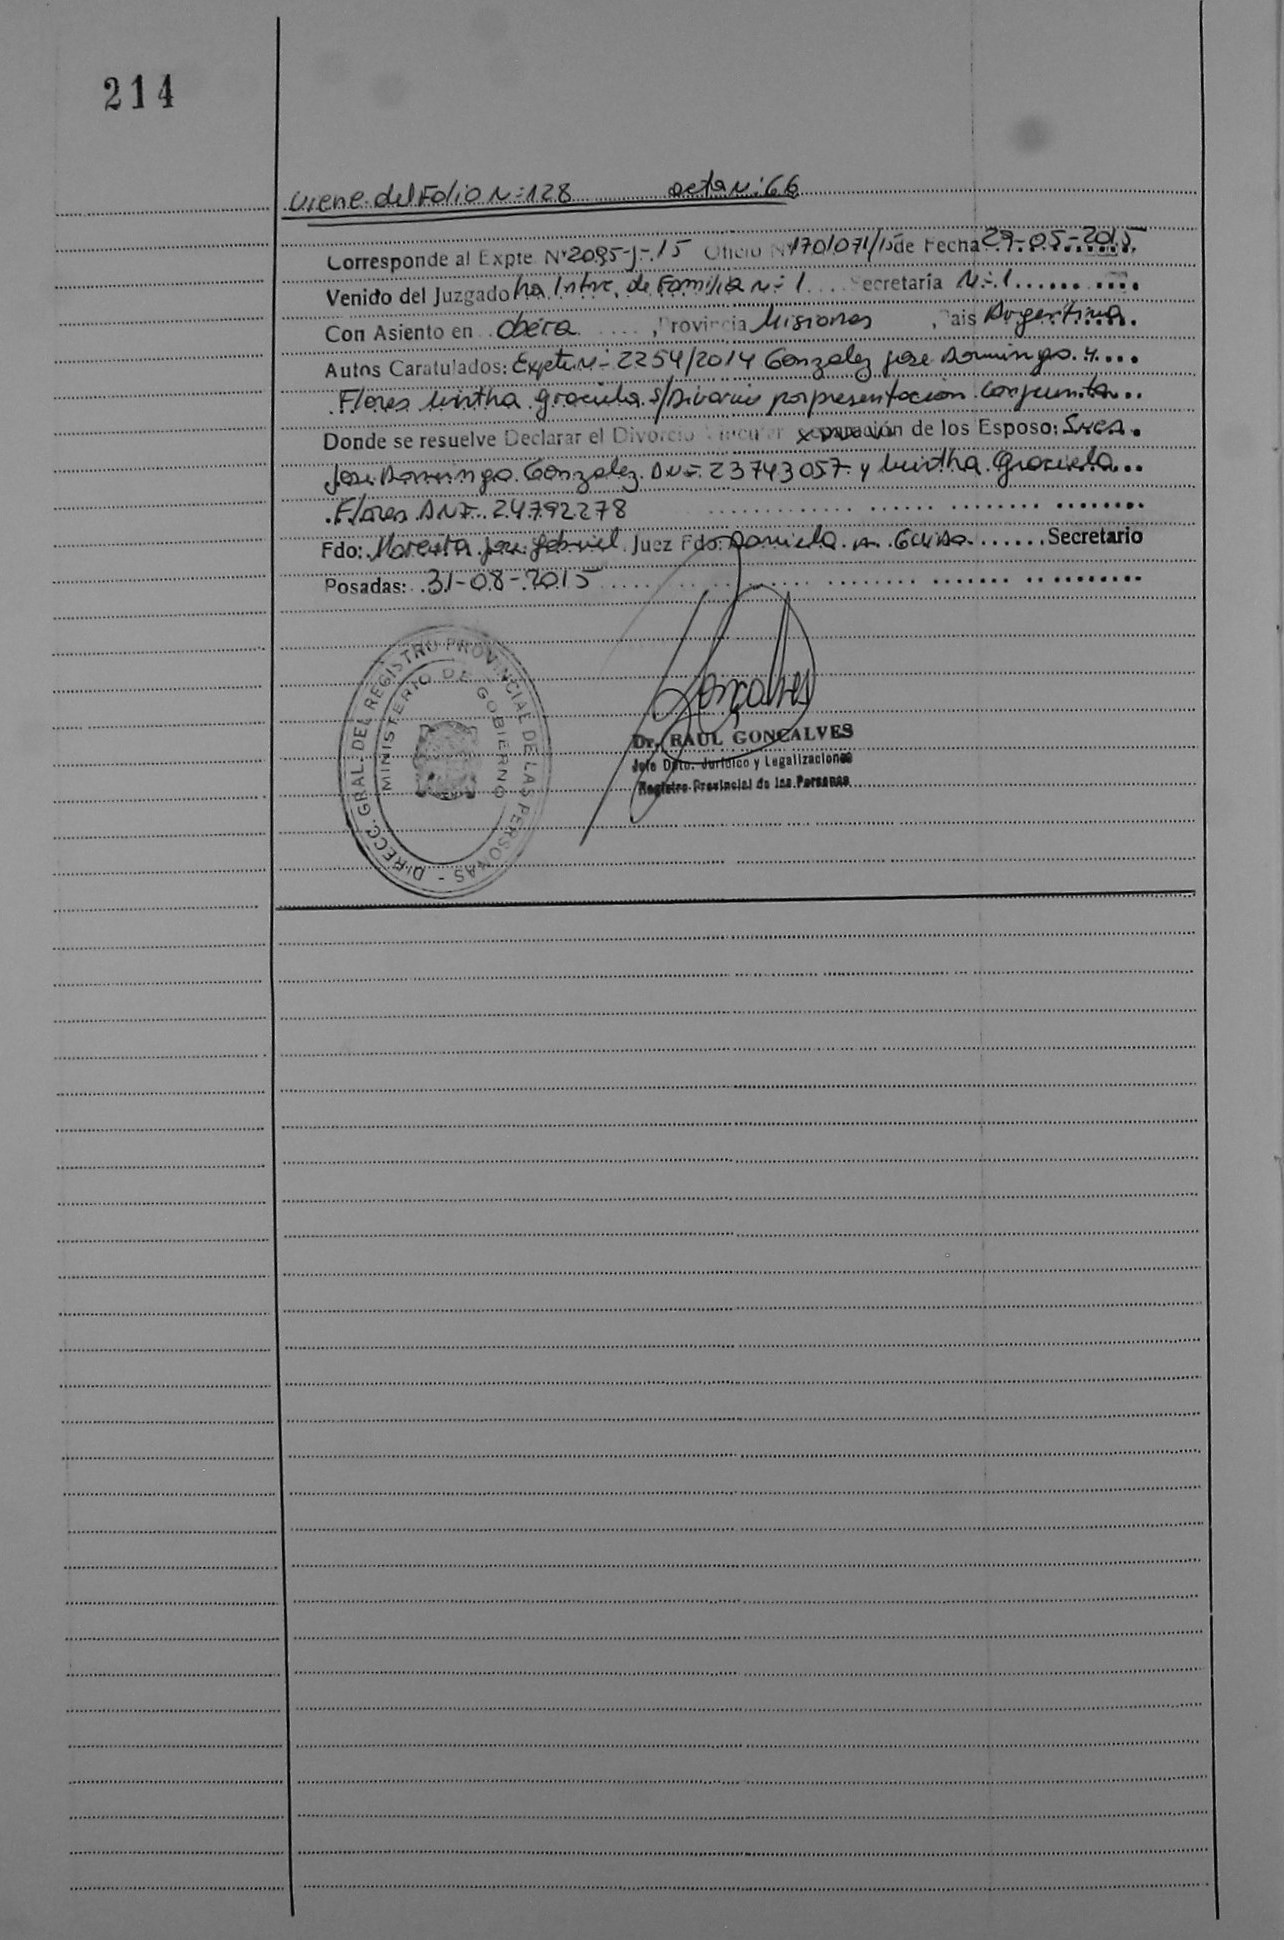 214
Viene del Folio N: 128 acta N: 66
Corresponde al Expte. Nº 2085-J-15 Oficio Nº 1701071/15 de Fecha 29-05-2015
Venido del Juzgado 1ra Intve. de Familia N: 1 Secretaría N: 1
Con Asiento en Oberá, Provincia Misiones, Pais Argentina
Autos Caratulados: Expte N: 2254/2014 Gonzalez Jose Domingo y
Flores Mirtha Graciela S/Divorcio por presentacion conjunta
Donde se resuelve Declarar el Divorcio Vincular separación de los Esposo: Sres.
Jose Domingo Gonzalez DNI: 23743057 y Mirtha Graciela
Flores DNI. 24792278
Fdo: Jose Gabriel Juez Fdo: Daniela Secretario
Posadas: 31-08-2015
DIRECC. GRAL. DEL REGISTRO PROVINCIAL DE LAS PERSONAS -
MINISTERIO DE GOBIERNO
Goncalves
Dr. RAUL GONCALVES
Jefe Dpto. Jurídico y Legalizaciones
Registro Provincial de las Personas